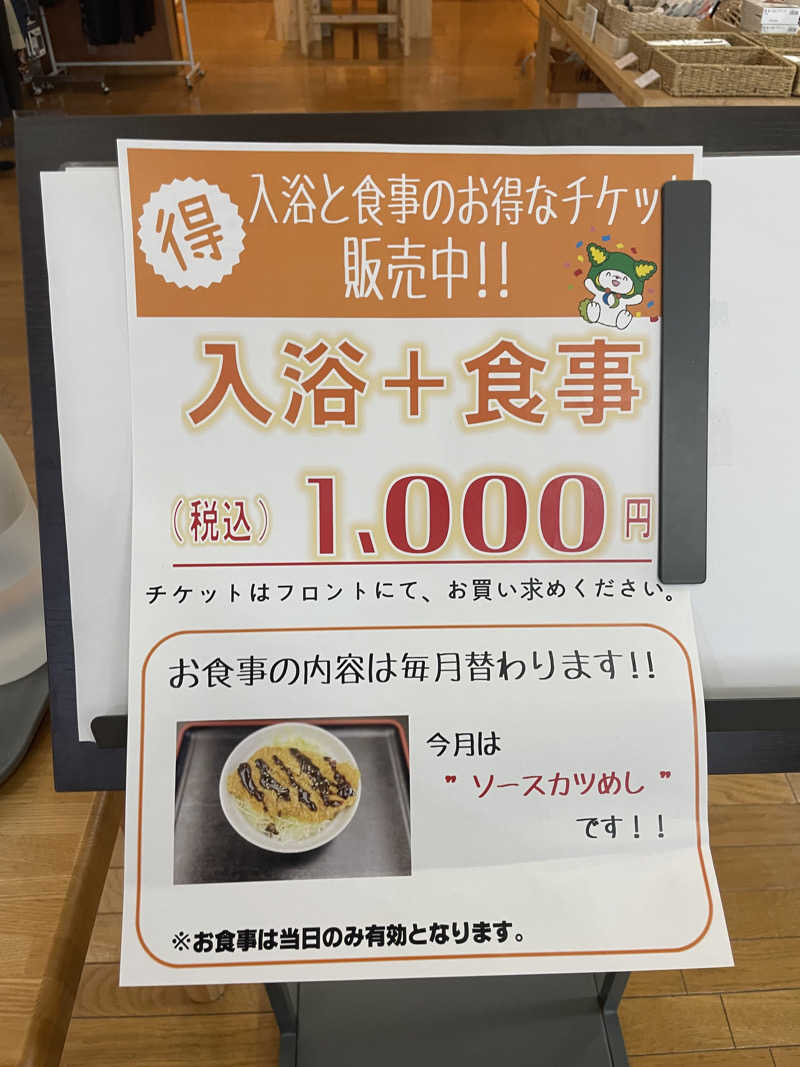 得
入浴と食事のお得なチケット
販売中!!
入浴＋食事
（税込）1,000円
チケットはフロントにて、お買い求めください。
お食事の内容は毎月替わります!!
今月は
”ソースカツめし”
です！！
※お食事は当日のみ有効となります。